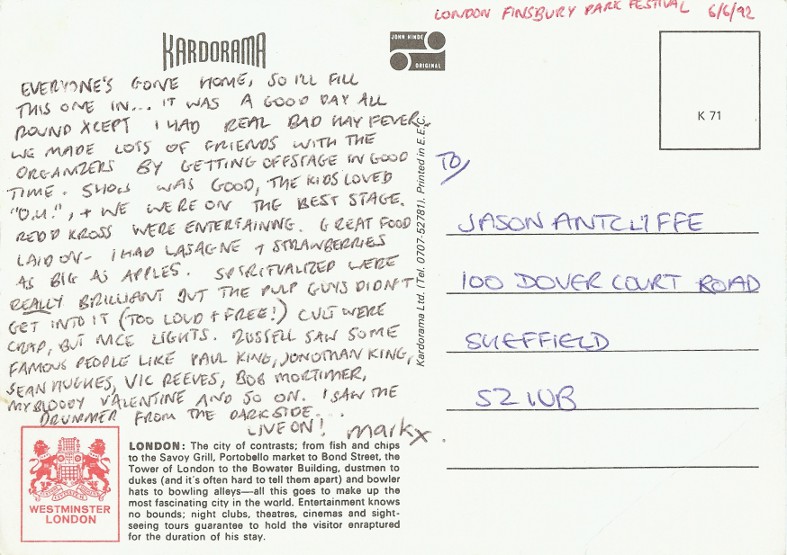 LONDON FINSBURY PARK FESTIVAL 6/6/92
KARDORAMA
JOHN HINDE
ORIGINAL
K 71
EVERYONE'S GONE HOME, SO I'LL FILL
THIS ONE IN... IT WAS A GOOD DAY ALL
ROUND XCEPT I HAD REAL BAD HAY FEVER.
WE MADE LOTS OF FRIENDS WITH THE
ORGANIZERS BY GETTING OFFSTAGE IN GOOD
TIME. SHOW WAS GOOD, THE KIDS LOVED
"O.U.", + WE WERE ON THE BEST STAGE.
REDD KROSS WERE ENTERTAINING. GREAT FOOD
LAID ON- I HAD LASAGNE + STRAWBERRIES
AS BIG AS APPLES. SPIRITUALIZED WERE
REALLY BRILLIANT BUT THE PULP GUYS DIDN'T
GET INTO IT (TOO LOUD + FREE!) CULT WERE
CRAP, BUT NICE LIGHTS. RUSSELL SAW SOME
FAMOUS PEOPLE LIKE PAUL KING, JONATHAN KING,
SEAN HUGHES, VIC REEVES, BOB MORTIMER,
MY BLOODY VALENTINE AND SO ON. I SAW THE
DRUMMER FROM THE DARKSIDE...
LIVE ON! Mark x.
Kardorama Ltd. (Tel. 0707-52781). Printed in E.E.C.
TO/
JASON ANTCLIFFE
100 DOVER COURT ROAD
SHEFFIELD
S2 1UB
WESTMINSTER
LONDON
LONDON: The city of contrasts; from fish and chips
to the Savoy Grill, Portobello market to Bond Street, the
Tower of London to the Bowater Building, dustmen to
dukes (and it's often hard to tell them apart) and bowler
hats to bowling alleys—all this goes to make up the
most fascinating city in the world. Entertainment knows
no bounds; night clubs, theatres, cinemas and sight-
seeing tours guarantee to hold the visitor enraptured
for the duration of his stay.